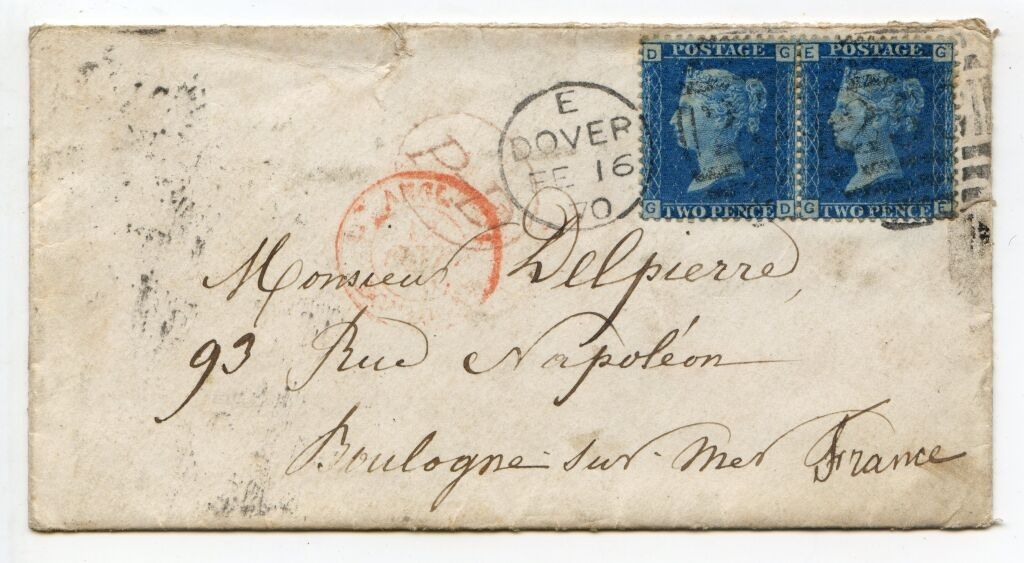 D POSTAGE G
E POSTAGE G
G TWO PENCE D
G TWO PENCE E
E
DOVER
FE 16
70
P.D.
Monsieur Delpierre,
93 Rue Napoléon
Boulogne-sur-Mer France